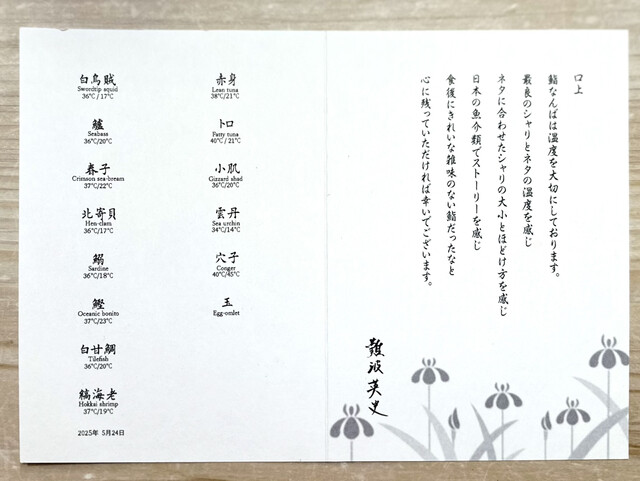 白烏賊
Swordtip squid
36℃ / 17℃
鱸
Seabass
36℃/20℃
春子
Crimson sea-bream
37℃/22℃
北寄貝
Hen-clam
36℃/17℃
鰯
Sardine
36℃/18℃
鰹
Oceanic bonito
37℃/23℃
白甘鯛
Tilefish
36℃/20℃
縞海老
Hokkai shrimp
37℃/19℃
2025年 5月24日
赤身
Lean tuna
38℃/21℃
トロ
Fatty tuna
40℃ / 21℃
小肌
Gizzard shad
36℃/20℃
雲丹
Sea urchin
34℃/14℃
穴子
Conger
40℃/45℃
玉
Egg-omlet
口上
鮨なんばは温度を大切にしております。
最良のシャリとネタの温度を感じ
ネタに合わせたシャリの大小とほどけ方を感じ
日本の魚介類でストーリーを感じ
食後にきれいな雑味のない鮨だったなと
心に残っていただければ幸いでございます。
難波英史